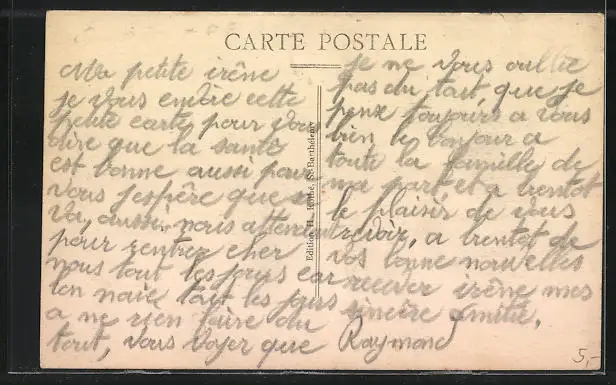 CARTE POSTALE
Ma petite irène
je vous envoie cette
petite carte pour vous
dire que la santé
est bonne aussi pour
vous j'espère que
va, aussi, nous
pour rentrer cher
nous tout les jours car
ton tout les jours
a ne rien faire du
tout, vous voyer que
je ne vous oublie
pas du tout, que je
pense toujours a vous
bien le bonjour a
toute la famille de
ma part et a bientot
le plaisir de vous
revoir, a bientot de
vos bonne nouvelles
recever irène mes
sincère amitié,
Raymond
Edition St-Barthélemy
5,-